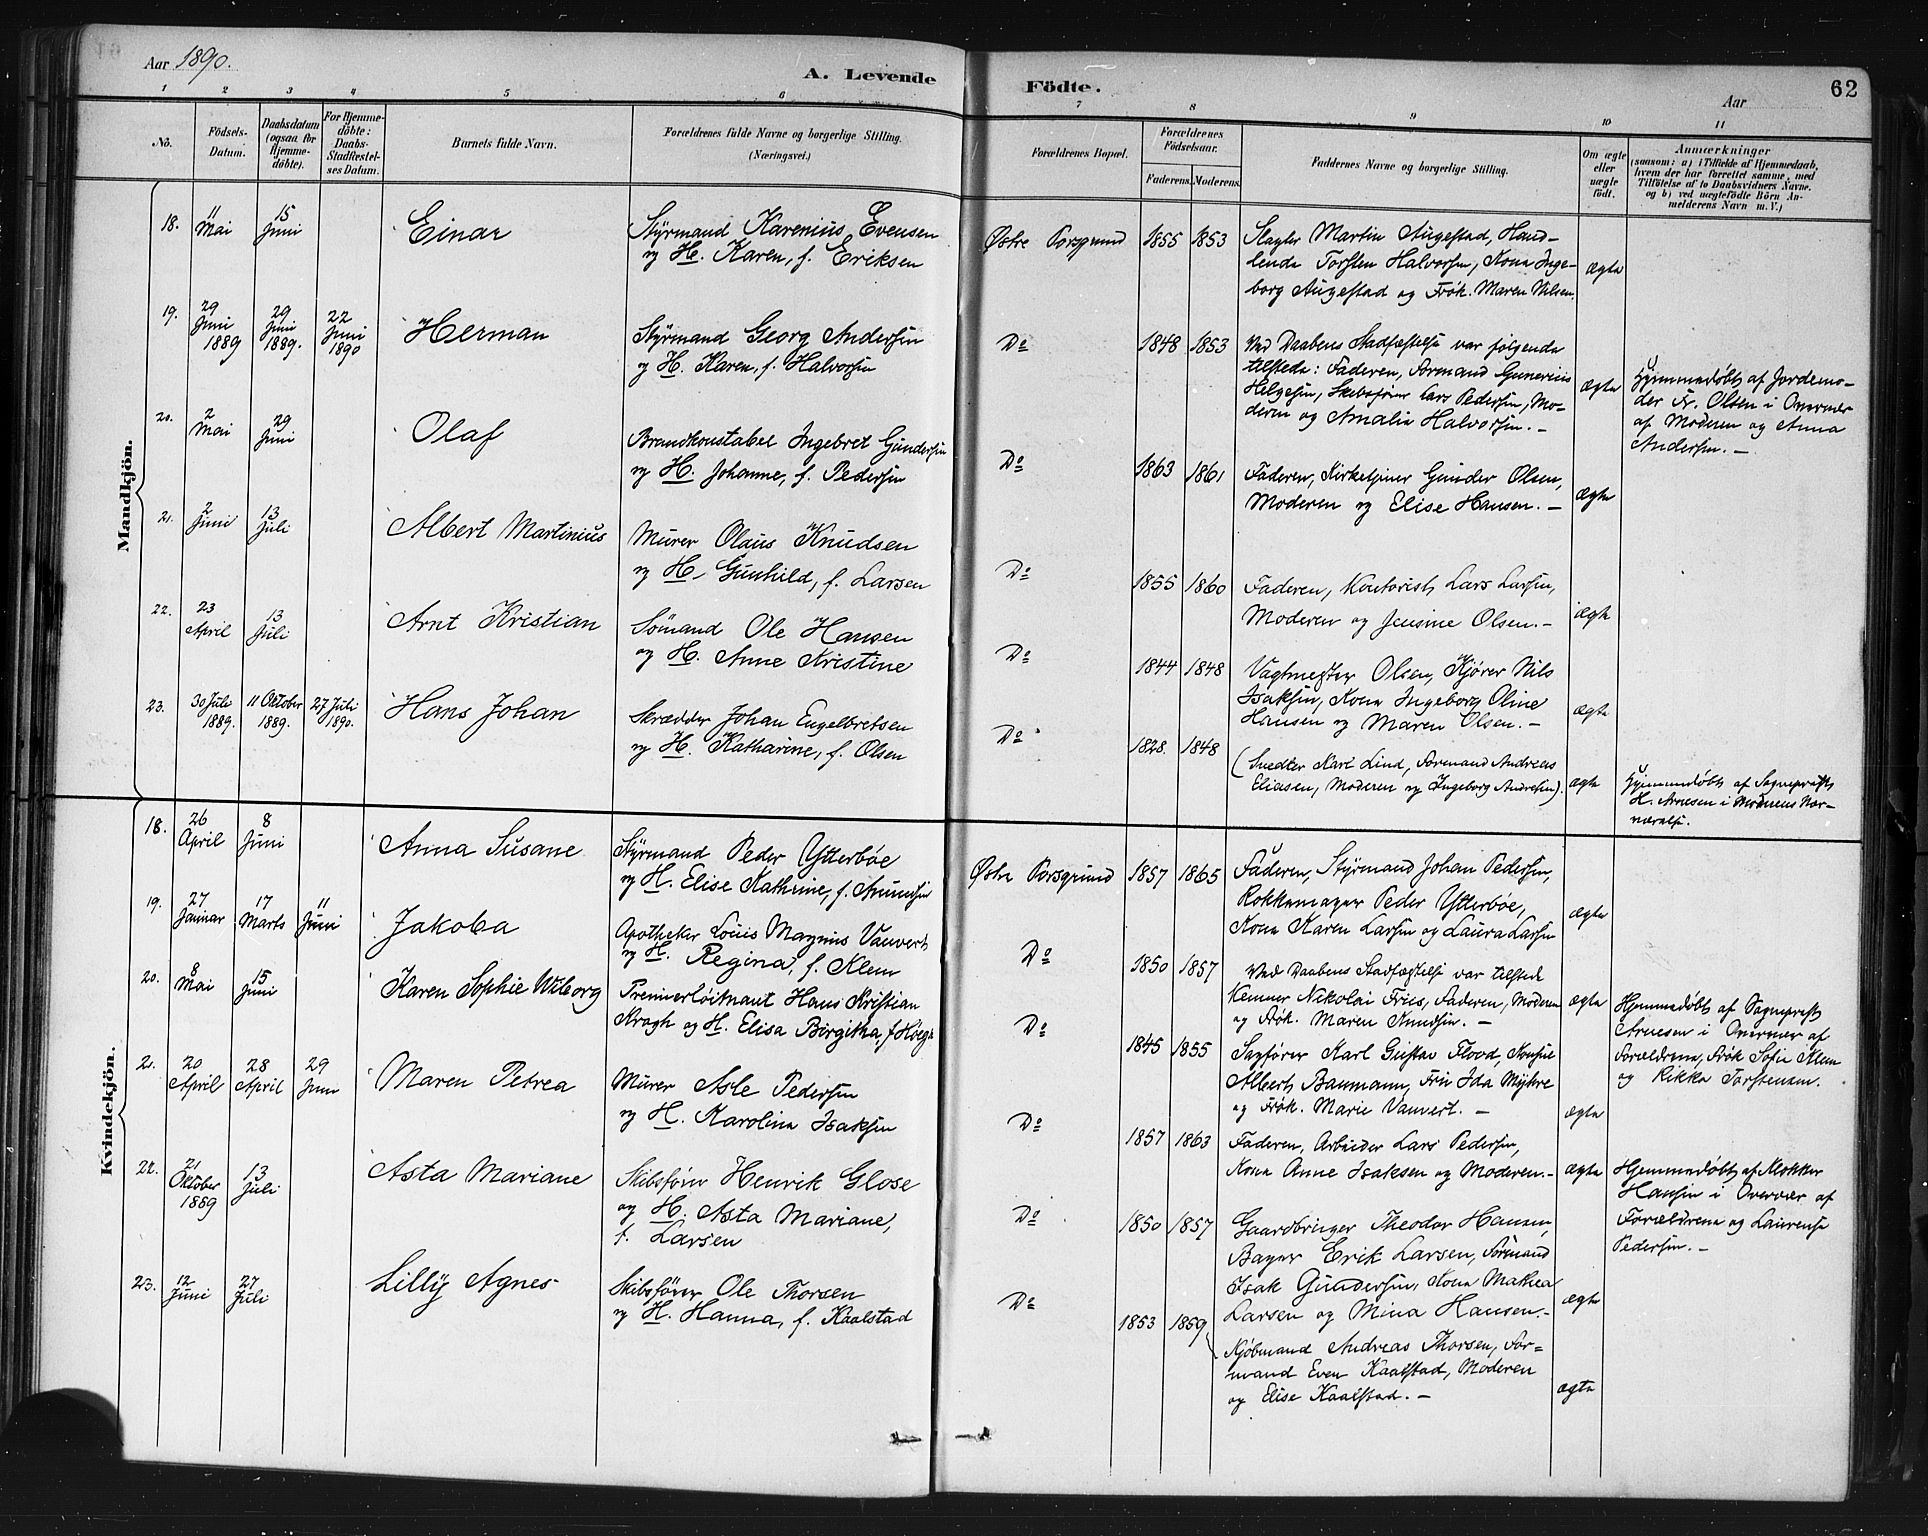 Aar 1890.
A. Levende
Födte.
Aar
62
1 2 3 4 5 6 7 8 9 10 11
No.
Födsels-
Datum.
Daabsdatum
(ogsaa for
Hjemme-
döbte).
For Hjemme-
döbte:
Daabs-
Stadfæstel-
ses Datum.
Barnets fulde Navn.
Forældrenes fulde Navne og borgerlige Stilling.
(Næringsvei.)
Forældrenes Bopæl.
Forældrenes
Födselsaar.
Faderens. Moderens.
Faddernes Navne og borgerlige Stilling.
Om ægte
eller
uægte
födt.
Anmærkninger
(saasom: a) i Tilfælde af Hjemmedaab,
hvem der har forrettet samme, med
Tilföielse af to Daabsvidners Navne.
og b) ved uægtefödte Börn An-
melderens Navn m. V.)
Mandkjön.
18. 11 Mai 15 Juni Einar
Styrmand Karenius Evensen
og H. Karen, f. Eriksen
Østre Porsgrund 1855 1853
Slagter Martin Augestad, Hand-
lende Torsten Halvorsen, Kona Inge-
borg Augestad og Frøk. Maren Nilsen.
ægte
19. 29 Juni 1889 29 Juni 1889. 22 Juni 1890 Herman
Styrmand Georg Andersen
og H. Karen, f. Halvorsen
Do 1848 1853
Ved Daabens Stadfæstelse var følgende
tilstede: Faderen, Formand Gunerius
Helgesen, Skibsfører Lars Pedersen, Mo-
deren og Amalia Halvorsen. —
ægte
Hjemmedøbt af Jordemo-
der Fr. Olsen i Overvær
af Moderen og Anna
Andersen. —
20. 2 Mai 29 Juni Olaf
Brandkonstabel Ingebret Gundersen
og H. Johanne, f. Pedersen
Do 1863 1861
Faderen, Kirketjener Gunder Olsen,
Moderen og Elise Hansen. —
ægte
21. 2 Juni 13 Juli Albert Martinius
Murer Olaus Knudsen
og H. Gunhild, f. Larsen
Do 1855 1860
Faderen, Kontorist Lars Larsen,
Moderen og Jensine Olsen. —
ægte
22. 23 April 13 Juli Arnt Kristian
Sømand Ole Hansen
og H. Anne Kristine
Do 1844 1848
Vagtmester Olsen, Kjører Nils
Isaksen, Kona Ingeborg Oline
Hansen og Maren Olsen. —
ægte
23. 30 Juli 1889. 11 Oktober 1889. 27 Juli 1890. Hans Johan
Skrædder Johan Engelbretsen
og H. Katharine, f. Olsen
Do 1828. 1848
(Snedker Karl Lind, Formand Andreas
Eliasen, Moderen og Ingeborg Andresen).
ægte
Hjemmedøbt af Sogneprest
H. Arnesen i Moderens Nær-
værelse.
Kvindekjön.
18. 26 April 8 Juni Anna Susane
Styrmand Peder Ytterbøe
og H. Elise Kathrine, f. Amundsen
Østre Porsgrund 1857 1865
Faderen, Styrmand Johan Pedersen,
Rokkemager Peder Ytterbøe,
Kona Karen Larsen og Laura Larsen
ægte
19. 27 Januar 17 Marts 11 Juni Jakoba
Apotheker Louis Magnus Vauvert
og H. Regina, f. Klem
Do 1850 1857
Ved Daabens Stadfæstelse var tilstede
Kemner Nikolai Friis, Faderen, Moderen
og Frøk. Maren Knudsen. —
ægte
Hjemmedøbt af Sogneprest
Arnesen i Overvær af
Forældrene, Frøk Sofie Klem
og Rikka Torstensen.
20. 8 Mai 15 Juni Karen Sophie Wiborg
Premierløitnant Hans Kristian
Kragh og H. Elisa Birgitha, f. Høegh
Do 1845 1855
Sagfører Karl Gustav Flood, Konsul
Albert Baumann, Fru Ida Myhre
og Frøk. Marie Vauvert. —
ægte
21. 20 April 28 April 29 Juni Maren Petrea
Murer Asle Pedersen
og H. Karolina Isaksen
Do 1857 1863
Faderen, Arbeider Lars Pedersen,
Kona Anne Isaksen og Moderen. —
ægte
Hjemmedøbt af Klokker
Hansen i Overvær af
Forældrene og Laurense
Pedersen. —
22. 21 Oktober 1889 13 Juli Asta Mariane
Skibsfører Henrik Glose
og H. Asta Mariane,
f. Larsen
Do 1850 1857
Gaardbruger Theodor Hansen,
Bager Erik Larsen, Formand
Isak Gundersen, Kona Mathea
Larsen og Mina Hansen. —
ægte
23. 12 Juni 27 Juli Lilly Agnes
Skibsfører Ole Thorsen
og H. Hanna, f. Kaalstad
Do 1853 1859
Kjøbmand Andreas Thorsen, For-
mand Even Kaalstad, Moderen
og Elise Kaalstad. —
ægte